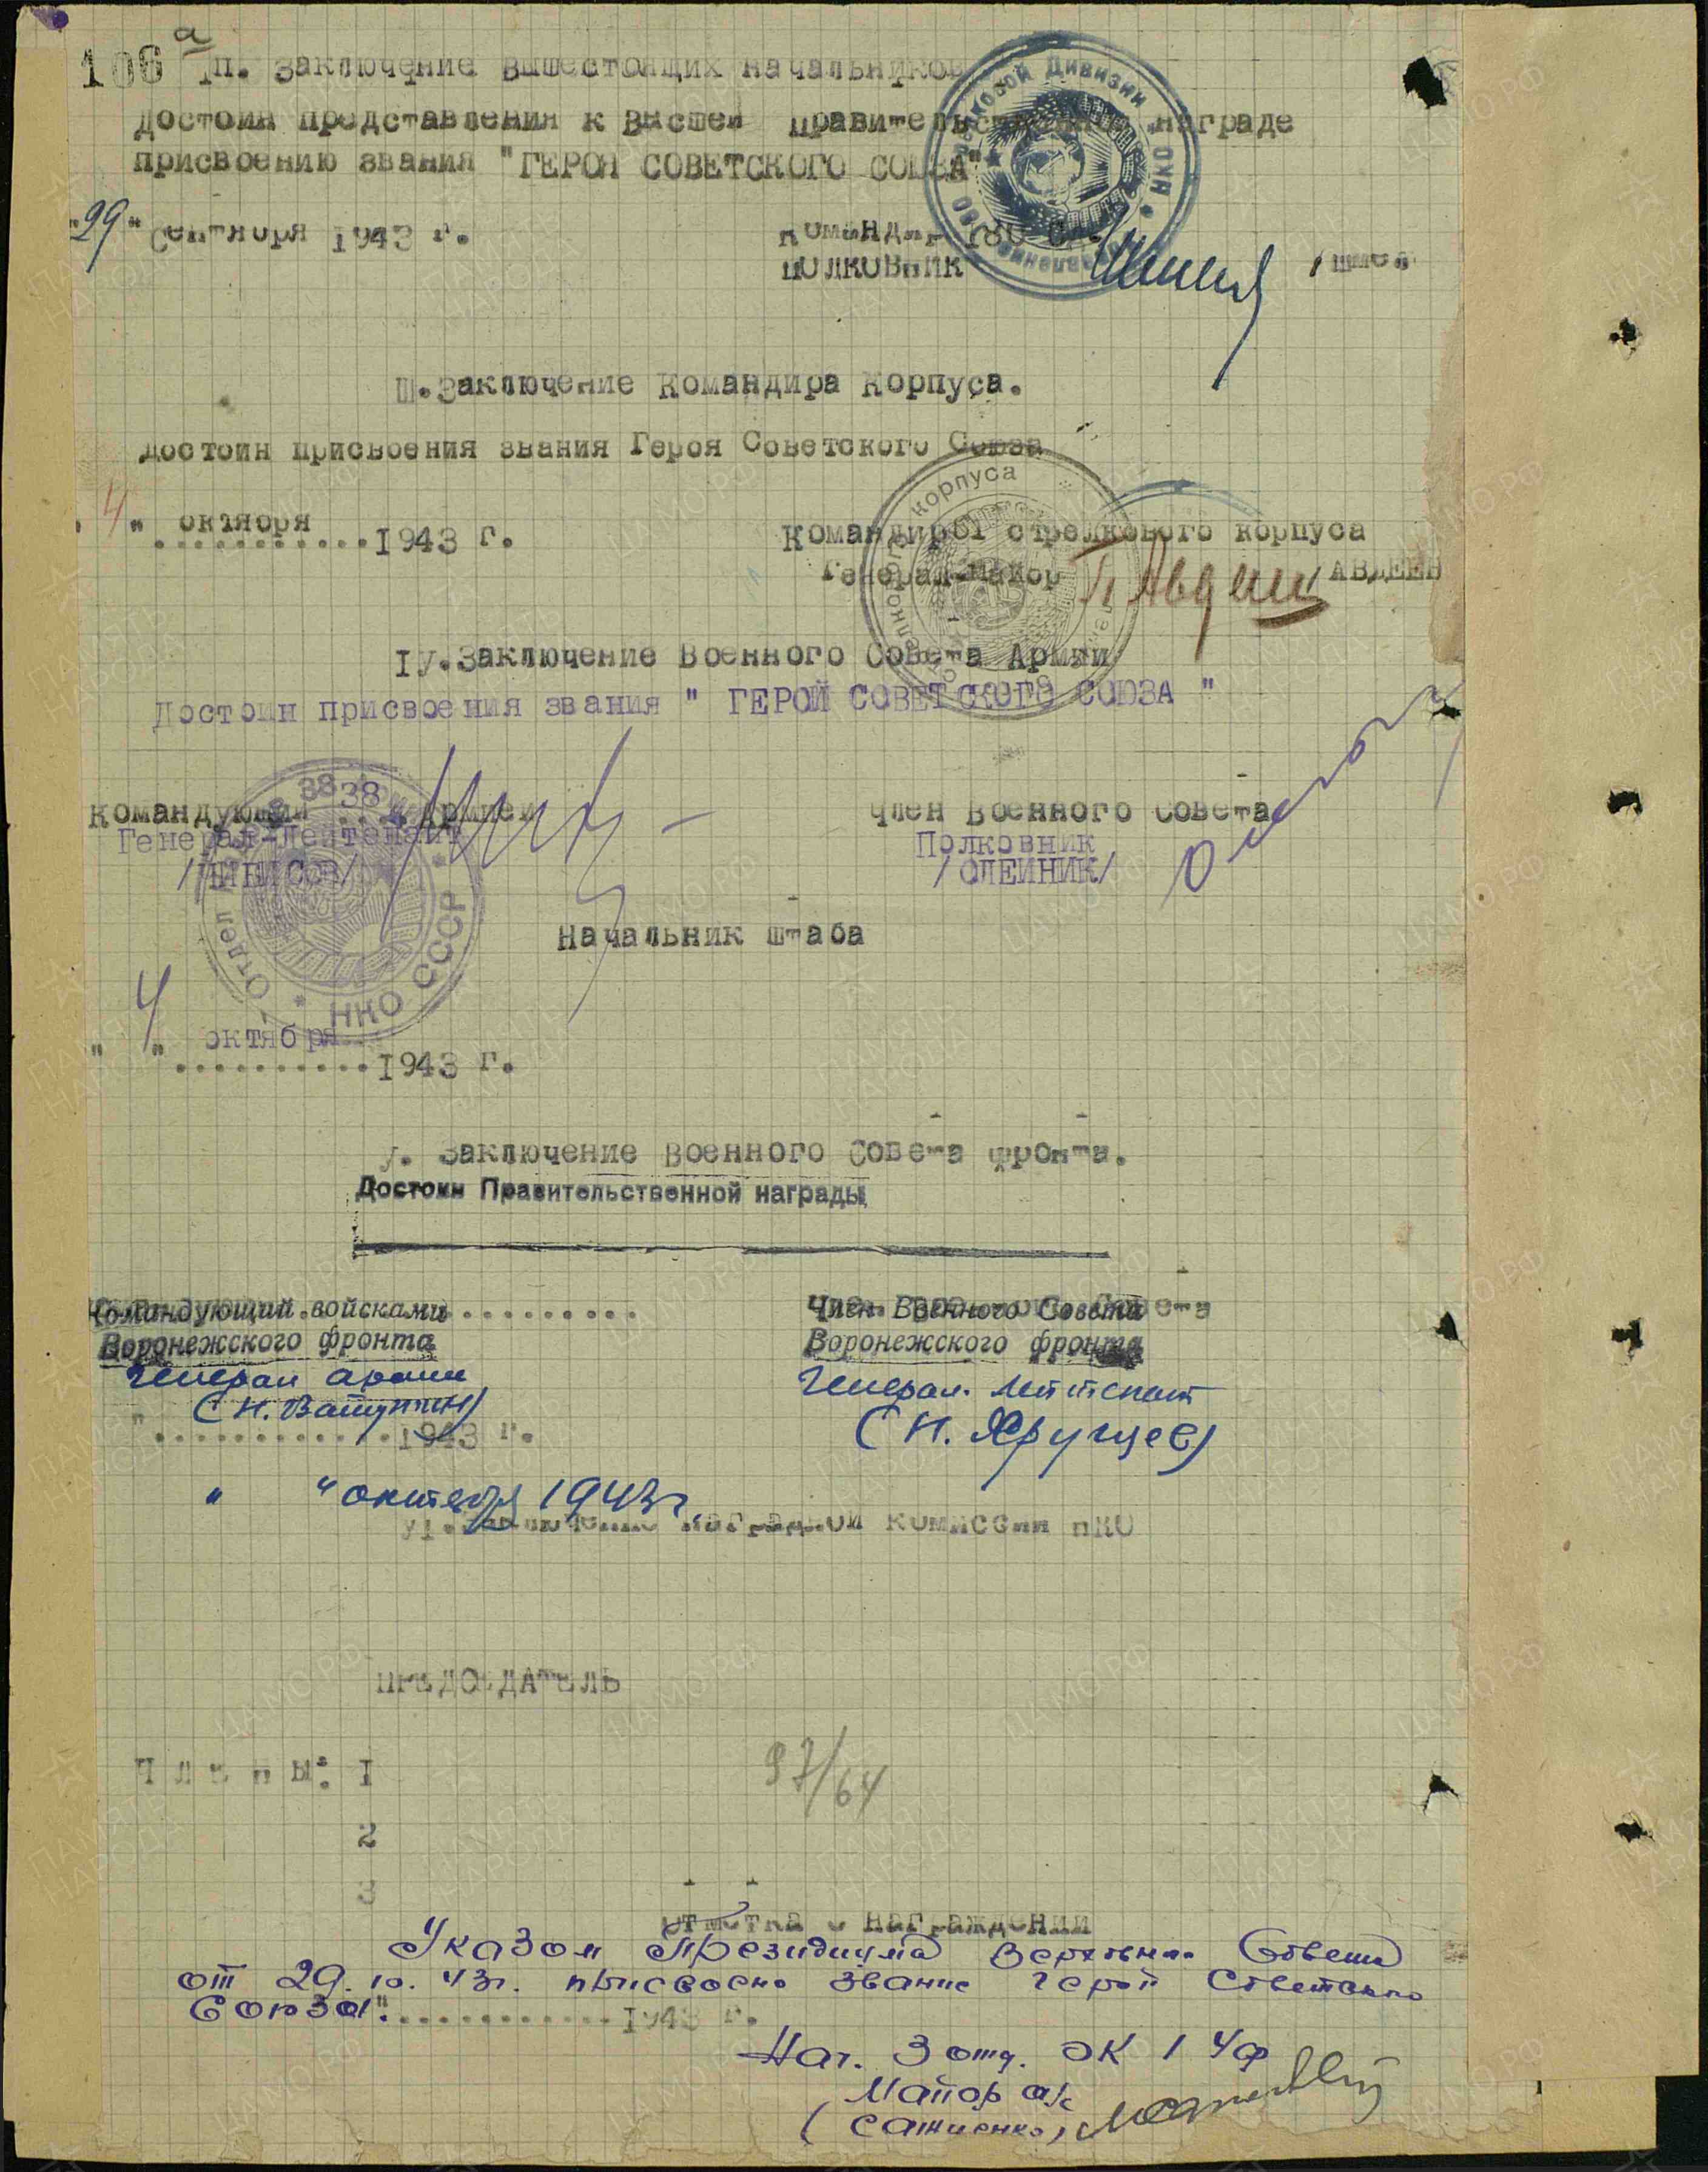 106 а
П. Заключение Вышестоящих начальников
Достоин представления к высшей правительственной награде
присвоению звания "ГЕРОЯ СОВЕТСКОГО СОЮЗА"
"29" Сентября 1943 г.
Командир 180 СД.
ПОЛКОВНИК
Ш.Заключение Командира Корпуса.
Достоин присвоения звания Героя Советского Союза
"4" октября 1943 г.
Командир 51 стрелкового корпуса
Генерал-майор П Авдеен АВДЕЕН
IУ.Заключение Военного Совета Армии
Достоин присвоения звания " ГЕРОЙ СОВЕТСКОГО СОЮЗА "
Командующий 38 Армией
Член Военного Совета
Генерал-Лейтенант
Полковник
/ЧИБИСОВ/
/ОЛЕЙНИК/
Начальник штаба
"4" октября
..........1943 г.
У. Заключение Военного Совета фронта.
Достоин Правительственной награды
Командующий войсками
Член Военного Совета
Воронежского фронта
Воронежского фронта
Генерал армии
Генерал-лейтенант
(Н. Ватутин)
(Н. Хрущев)
"............1943 г.
" " октября 1943г.
УI.Заключение наградной комиссии НКО
ПРЕДСЕДАТЕЛЬ
Ч л е н ы: I
97/64
2
3
Отметка о награждении
Указом Президиума Верховн. Совета
от 29.10.43г. присвоено звание Герой Советского
Союза".
...........1943 г.
Нач. 3 отд. ОК 1 УФ
Майор а/с
(Сатченко)